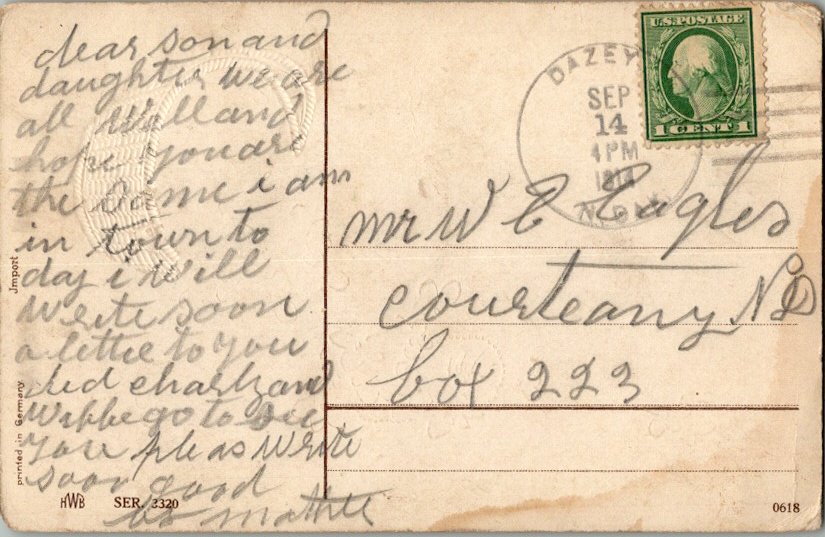 dear son and
daughter we are
all well and
hope you are
the same i am
in town to
day i will
write soon
a letter to you
did charly and
wiffe go to see
you pleas write
soon good
by mother
U.S. POSTAGE
1 CENT 1
DAZEY
SEP
14
4 PM
N. DAK.
mr W E Eagles
courteany ND
box 223
Jmport
printed in Germany
HWB SER. 2320
0618